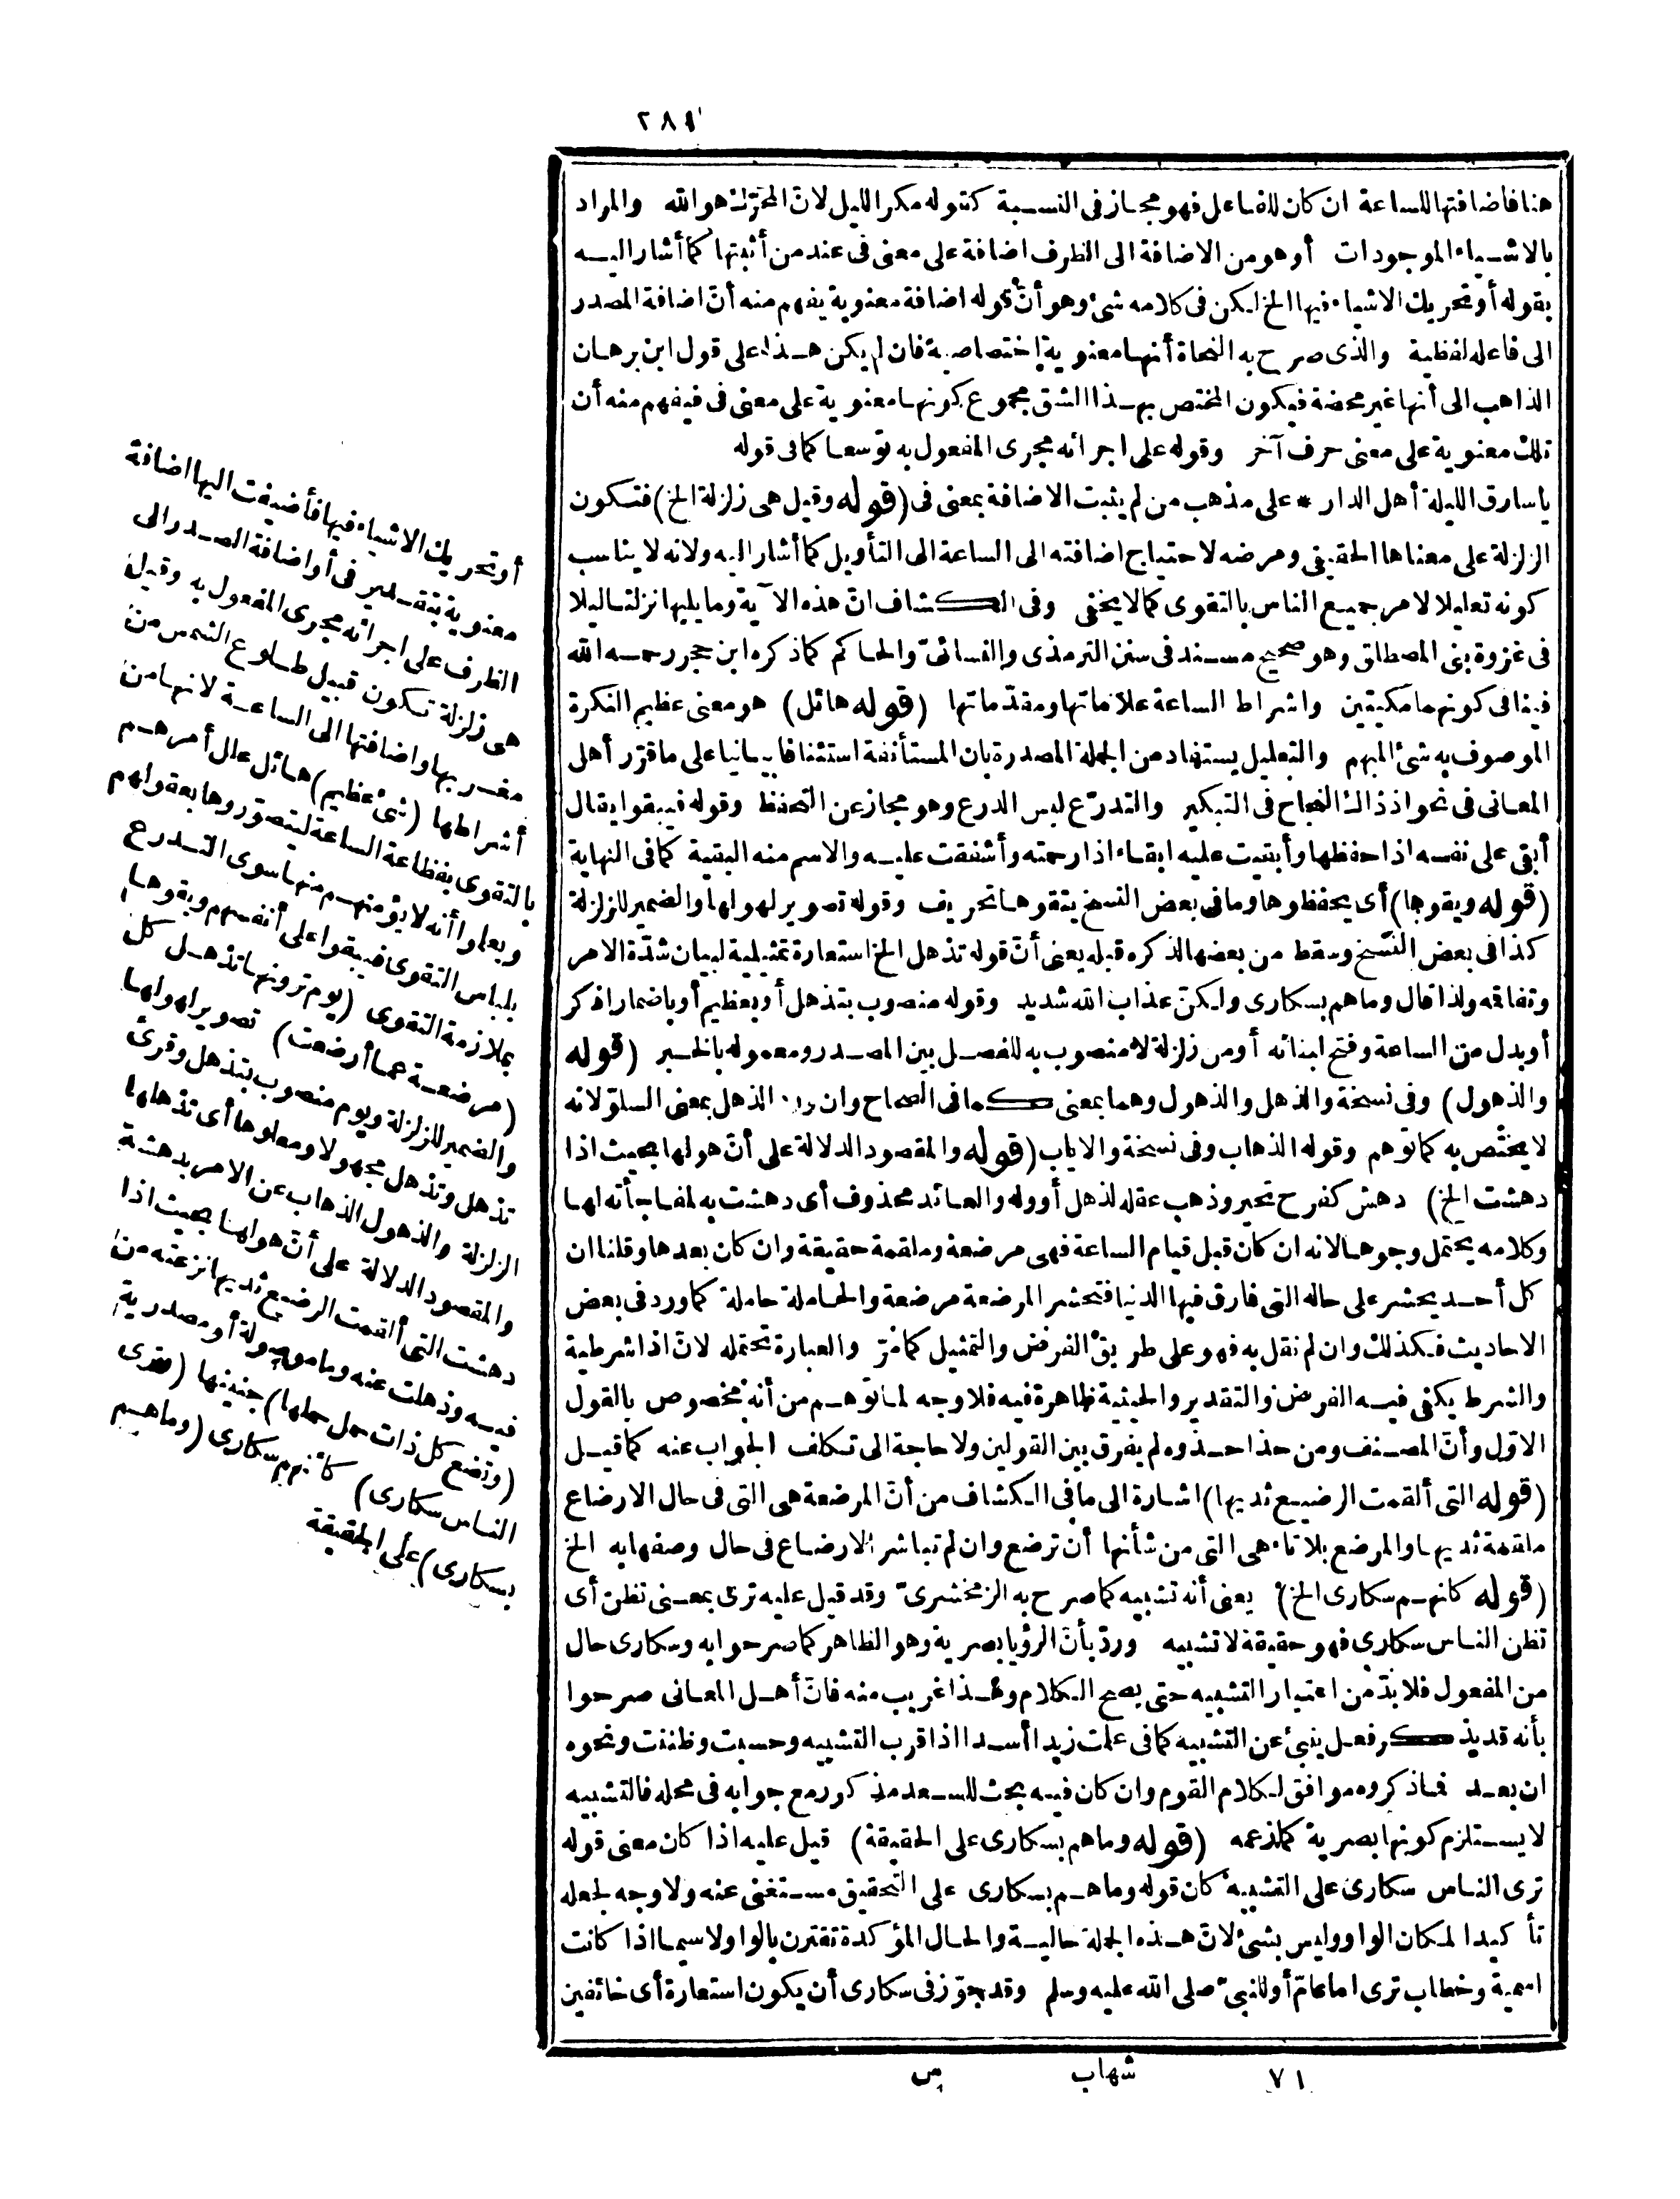 ٢٨١
هنا فاضافتها للساعة ان كان للفاعل فهو مجاز فى النسبة كقوله مكر الليل لان المحرّك هو الله والمراد
بالاشياء الموجودات أو هو من الاضافة الى الظرف اضافة على معنى فى عند من أثبتها كما أشار اليه
بقوله أو تحريك الاشياء فيها الخ لكن فى كلامه شئ وهو أنّ قوله اضافة معنوية يفهم منه أنّ اضافة المصدر
الى فاعله لفظية والذى صرح به النحاة أنها معنوية اختصاصية فان لم يكن هذا على قول ابن برهان
الذاهب الى أنها غير محضة فيكون المختص بهذا الشق مجموع كونها معنوية على معنى فى فيفهم منه أن
تلك معنوية على معنى حرف آخر وقوله على اجرائه مجرى المفعول به توسعا كما فى قوله
ياسارق الليلة أهل الدار * على مذهب من لم يثبت الاضافة بمعنى فى (قوله وقيل هى زلزلة الخ) فتكون
الزلزلة على معناها الحقيقى ومرضه لاحتياج اضافته الى الساعة الى التأويل كما أشار اليه ولانه لا يناسب
كونه تعليلا لامر جميع الناس بالتقوى كما لا يخفى وفى الكشاف انّ هذه الآية وما يليها نزلتا ليلا
فى غزوة بنى المصطلق وهو صحيح مسند فى سنن الترمذى والنسائىّ والحاكم كما ذكره ابن حجر رحمه الله
فينافى كونهما مكيتين واشراط الساعة علاماتها ومقدّماتها (قوله هائل) هو معنى عظيم النكرة
الموصوف به شئ المبهم والتعليل يستفاد من الجملة المصدرة بان المستأنفة استئنافا بيانيا على ما قرّر أهل
المعانى فى نحو اذ ذاك النجاح فى التبكير والتدرّع لبس الدرع وهو مجاز عن التحفظ وقوله فيبقوا يقال
أبقى على نفسه اذا حفظها وأبقيت عليه ابقاء اذا رحمته وأشفقت عليه والاسم منه البقية كما فى النهاية
(قوله ويقوها) أى يحفظوها وما فى بعض النسخ يتقوها تحريف وقوله تصوير لهولها والضمير للزلزلة
كذا فى بعض النسخ وسقط من بعضها لذكره قبله يعنى أنّ قوله تذهل الخ استعارة تمثيلية لبيان شدّة الامر
وتفاقمه ولذا قال وما هم بسكارى ولكنّ عذاب الله شديد وقوله منصوب بتذهل أو بعظيم أو باضمار اذكر
أو بدل من الساعة وفتح لبنائه أو من زلزلة لا منصوب به للفصل بين المصدر ومعموله بالخبر (قوله
والذهول) وفى نسخة والذهل والذهول وهما بمعنى كما فى الصحاح وان ورد الذهل بمعنى السلوّ لانه
لا يختص به كما توهم وقوله الذهاب وفى نسخة والاياب (قوله والمقصود الدلالة على أنّ هولها بحيث اذا
دهشت الخ) دهش كفرح تحير وذهب عقله لذهل أو وله والعائد محذوف أى دهشت به لمفاجأته لها
وكلامه يحتمل وجوها لانه ان كان قبل قيام الساعة فهى مرضعة وملقمة حقيقة وان كان بعدها وقلنا ان
كل أحد يحشر على حاله التى فارق فيها الدنيا فتحشر المرضعة مرضعة والحاملة حاملة كما ورد فى بعض
الاحاديث فكذلك وان لم نقل به فهو على طريق الفرض والتمثيل كما مرّ والعبارة تحتمله لانّ اذا شرطية
والشرط يكفى فيه الفرض والتقدير والحيثية ظاهرة فيه فلا وجه لما توهم من أنه مخصوص بالقول
الاوّل وأنّ المصنف ومن حذا حذوه لم يفرق بين القولين ولا حاجة الى تكلف الجواب عنه كما قيل
(قوله التى ألقمت الرضيع ثديها) اشارة الى ما فى الكشاف من أنّ المرضعة هى التى فى حال الارضاع
ملقمة ثديها والمرضع بلا تاء هى التى من شأنها أن ترضع وان لم تباشر الارضاع فى حال وصفها به الخ
(قوله كانهم سكارى الخ) يعنى أنه تشبيه كما صرح به الزمخشرىّ وقد قيل عليه ترى بمعنى تظن أى
تظن الناس سكارى فهو حقيقة لا تشبيه وردّ بأنّ الرؤيا بصرية وهو الظاهر كما صرحوا به وسكارى حال
من المفعول فلا بدّ من اعتبار التشبيه حتى يصح الكلام وهذا غريب منه فانّ أهل المعانى صرحوا
بأنه قد يذكر فعل ينبئ عن التشبيه كما فى علمت زيدا أسدا اذا قرب التشبيه وحسبت وظننت ونحوه
ان بعد فما ذكروه موافق لكلام القوم وان كان فيه بحث للسعد مذكور مع جوابه فى محله فالتشبيه
لا يستلزم كونها بصرية كما زعمه (قوله وما هم بسكارى على الحقيقة) قيل عليه اذا كان معنى قوله
ترى الناس سكارى على التشبيه كان قوله وما هم بسكارى على التحقيق مستغنى عنه ولا وجه لجعله
تأكيدا لمكان الواو وليس بشئ لانّ هذه الجملة حالية والحال المؤكدة تقترن بالواو لا سيما اذا كانت
اسمية وخطاب ترى اما عامّ أو للنبىّ صلى الله عليه وسلم وقد جوّز فى سكارى أن يكون استعارة أى خائفين
أو تحريك الاشياء فيها فأضيفت اليها اضافة
معنوية بتقدير فى أو اضافة المصدر الى
الظرف على اجرائه مجرى المفعول به وقيل
هى زلزلة تكون قبيل طلوع الشمس من
مغربها واضافتها الى الساعة لانها من
أشراطها (شئ عظيم) هائل علل أمرهم
بالتقوى بفظاعة الساعة ليتصوّروها بعقولهم
ويعلموا أنه لا يؤمنهم منها سوى التدرع
بلباس التقوى فيبقوا على أنفسهم ويقوها
بملازمة التقوى (يوم ترونها تذهل كل
مرضعة عما أرضعت) تصوير لهولها
والضمير للزلزلة ويوم منصوب بتذهل وقرئ
تذهل وتذهل مجهولا ومعلوما أى تذهلها
الزلزلة والذهول الذهاب عن الامر بدهشة
والمقصود الدلالة على أنّ هولها بحيث اذا
دهشت التى ألقمت الرضيع ثديها نزعته من
فيه وذهلت عنه وما موصولة أو مصدرية
(وتضع كل ذات حمل حملها) جنينها (وترى
الناس سكارى) كأنهم سكارى (وما هم
بسكارى) على الحقيقة
٧١ شهاب س